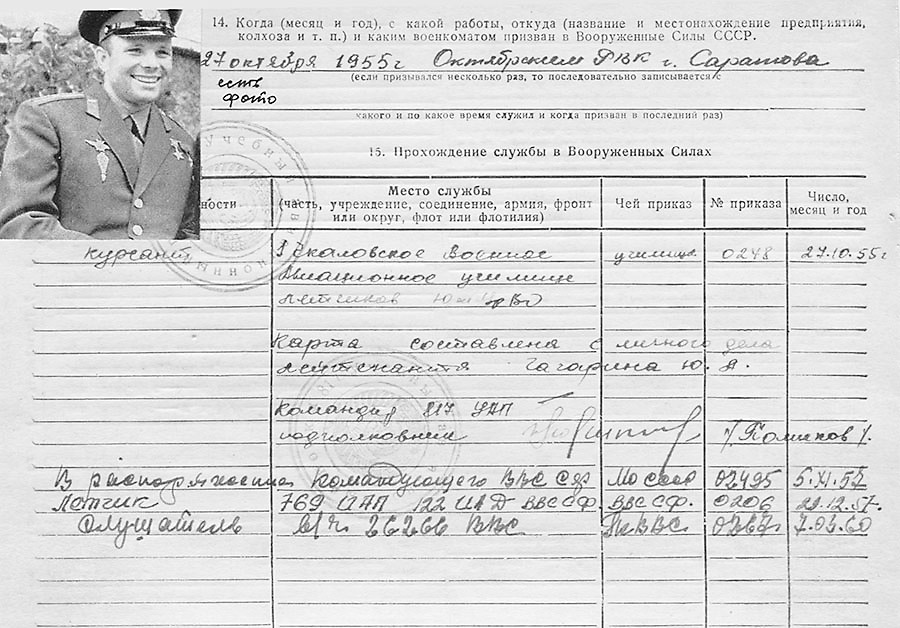 14. Когда (месяц и год), с какой работы, откуда (название и местонахождение предприятия,
колхоза и т. п.) и каким военкоматом призван в Вооруженные Силы СССР.
27 октября 1955 г Октябрским РВК г. Саратова
(если призывался несколько раз, то последовательно записывается с
есть
фото
какого и по какое время служил и когда призван в последний раз)
15. Прохождение службы в Вооруженных Силах
ности
Место службы
(часть, учреждение, соединение, армия, фронт
или округ, флот или флотилия)
Чей приказ
№ приказа
Число,
месяц и год
курсант Чкаловское Военное училища 0248 27.10.55г
Авиационное училище
летчиков
Карта составлена с личного дела
лейтенанта Гагарина Ю. А.
Командир УАП
подполковник
В распоряжении Командующего ВВС СФ Мо СССР 02495 5.XI.57
Летчик 769 ИАП 122 ИАД ВВС СФ. ВВС СФ. 0206 29.12.57.
Слушатель в/ч. 26266 ВВС ГК ВВС. 0267. 7.03.60